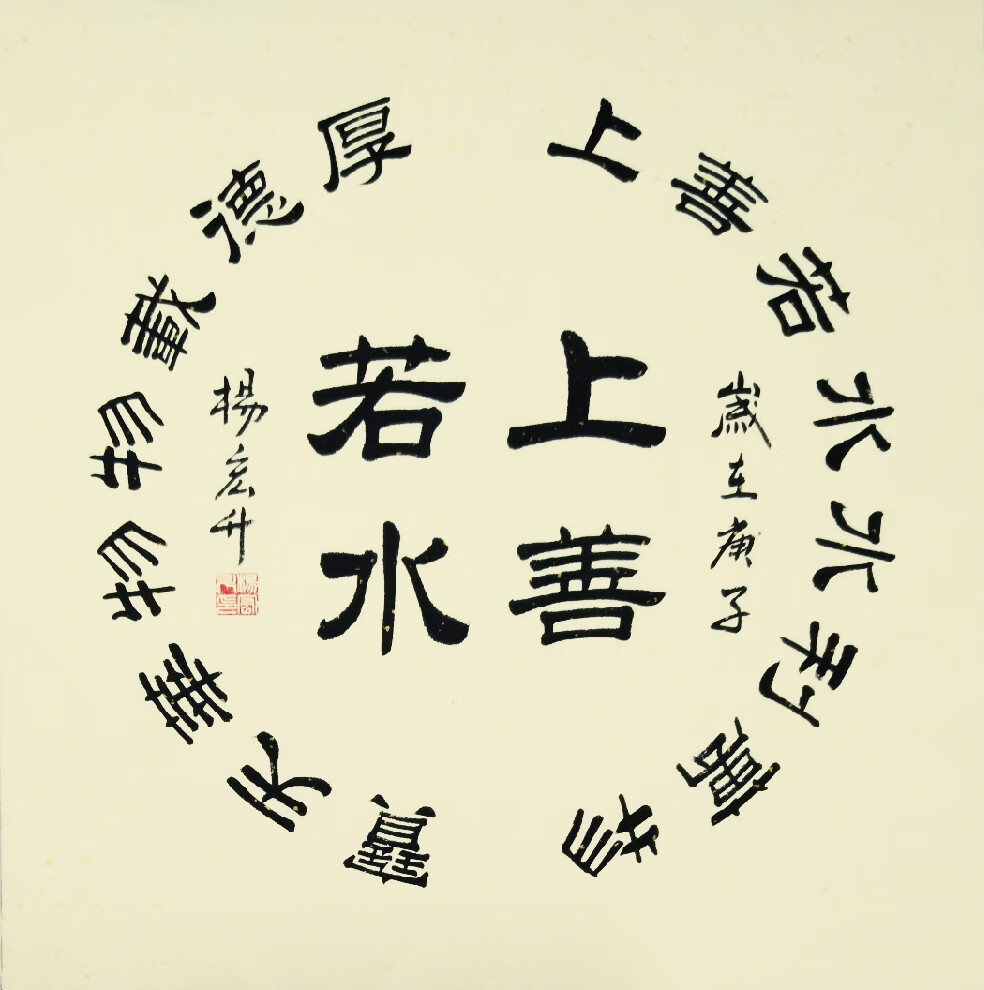 上善若水水利萬物
厚德載物物華天寶
上善
若水
歲在庚子
楊宏升